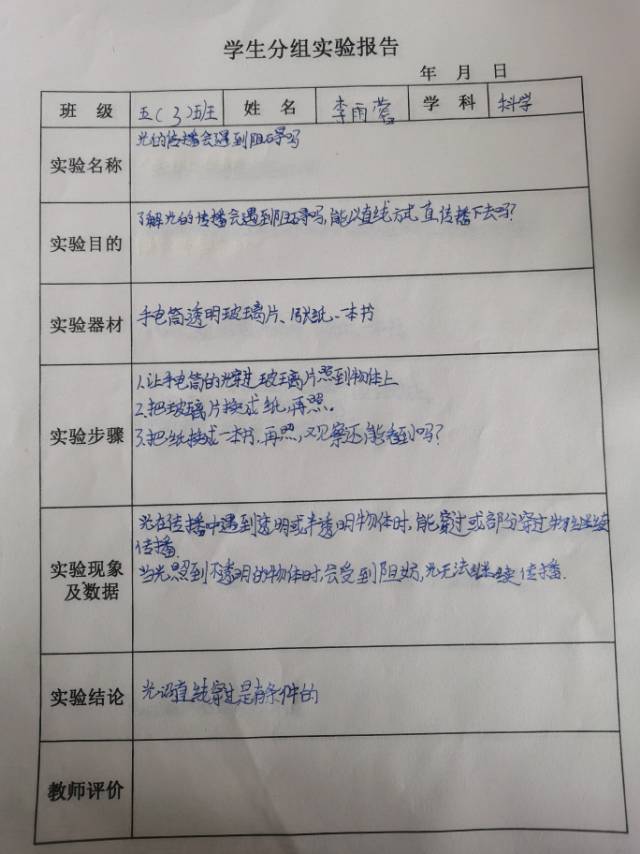 学生分组实验报告
年 月 日
班 级 五(3)班 姓 名 李雨莺 学 科 科学
实验名称 光的传播会遇到阻碍吗
实验目的 了解光的传播会遇到阻碍吗,能以直线方式直传播下去吗?
实验器材 手电筒透明玻璃片、1张纸、一本书
实验步骤 1.让手电筒的光穿过玻璃片照到物体上
2.把玻璃片换成纸,再照。
3.把纸换成一本书,再照,观察还能看到吗?
实验现象及数据 光在传播中遇到透明或半透明物体时,能穿过或部分穿过物体继续
传播.
当光照到不透明的物体时,会受到阻妨,光无法继续传播.
实验结论 光沿直线穿过是有条件的
教师评价